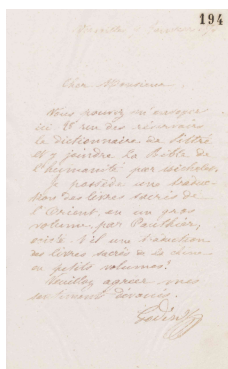 194
Cher Monsieur
Vous pouvez m'envoyer
ici 2 rue des réservoirs
le dictionnaire de Littré
et y joindre la Bible de
l'humanité par Michelet.
Je possède une traduc-
tion des livres sacrés de
l'Orient, en un gros
volume par Pauthier,
existe t'il une traduction
des livres sacrés de la
en petits volumes?
Veuillez agréer mes
sentiments dévoués.